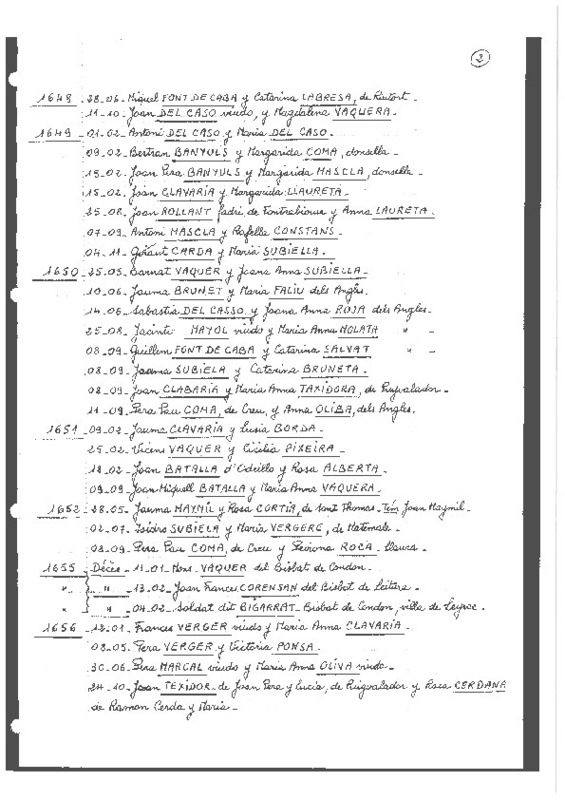 2
1648 - 28-06- Miquel FONT DE CABA y Catarina LABRESA, de Riutort -
11-10- Joan DEL CASO viudo, y Magdalena VAQUERA -
1649 - 01-02- Antoni DEL CASO y Maria DEL CASO.
09-02- Bertran BANYULS y Margarida COMA, donsella -
15-02- Joan Pera BANYULS y Margarida MASCLA, donsella -
15-02- Joan CLAVARIA y Margarida LLAURETA -
25-08- Joan ROLLANT fadri, de y Anna LAURETA.
07-09- Antoni MASCLA y Rafella CONSTANS -
04-11- Geraut CARDA y Maria SUBIELLA.
1650 - 25-05- Bernat VAQUER y Joana Anna SUBIELLA -
10-06- Jauma BRUNET y Maria FALIU dels Angles.
14-06- Sabastia DEL CASSO y Joana Anna ROJA dels Angles.
25-08- Jacinto MAYOL viudo y Maria Anna MOLATA " -
08-09- Guillem FONT DE CABA y Catarina SALVAT " -
08-09- Jaama SUBIELA y Catarina BRUNETA.
08-09- Joan CLABARIA y Maria Anna TAXIDORA, de Puyvalador -
11-09- Pera Pau COMA, de Creu, y Anna OLIBA, dels Angles.
1651 - 09-02- Jauma CLAVARIA y Lusia BORDA -
25-02- Vicens VAQUER y Cicilia PIXEIRA -
18-02- Joan BATALLA d'Odeillo y Rosa ALBERTA -
09-09- Joan Miquell BATALLA y Maria Anna VAQUERA.
1652 - 28-05- Jauma MAYNIL y Rosa CORTIA, de Sant Thomas - Joan Maymil -
02-07- Isidro SUBIELA y Maria VERGERE, de Matemale -
08-09- Pera Pau COMA, de Creu y ROCA - Llaura -
1655 - Décès - 11-01- Mons. VAQUER del Bisbat de Condon -
" - " - 13-02- Joan Frances CORENSAN del Bisbat de
" - " - 04-02- Soldat dit BIGARRAT - Bisbat de Condon, villa de
1656 - 12-01- Frances VERGER viudo y Maria Anna CLAVARIA -
08-05- Pera VERGER y Victoria PONSA.
30-06- Pera MARCAL viudo y Maria Anna OLIVA viuda -
24-10- Joan TEXIDOR de Joan Pera y Lucia, de Puigvalador y Rosa CERDANA
de Ramon Cerda y Maria -